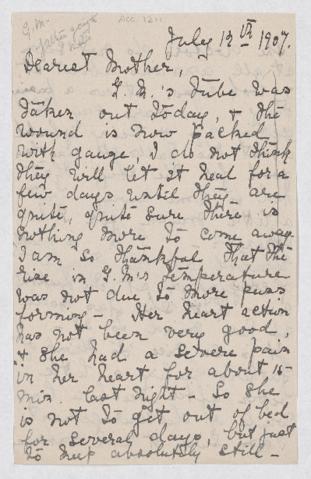 G.M.
Acc. 1211
July 12th 1907.
Dearest Mother,
G. M.'s tube was
taken out today, & the
wound is now packed
with gauze, I do not think
they will let it heal for a
few days until they are
quite, quite sure there is
nothing more to come away.
I am so thankful that the
rise in G. M's temperature
was not due to more puss
forming - Her heart action
has not been very good,
& she had a severe pain
in her heart for about 15-
min. last night - So she
is not to get out of bed
for several days, but just
to keep absolutely still -